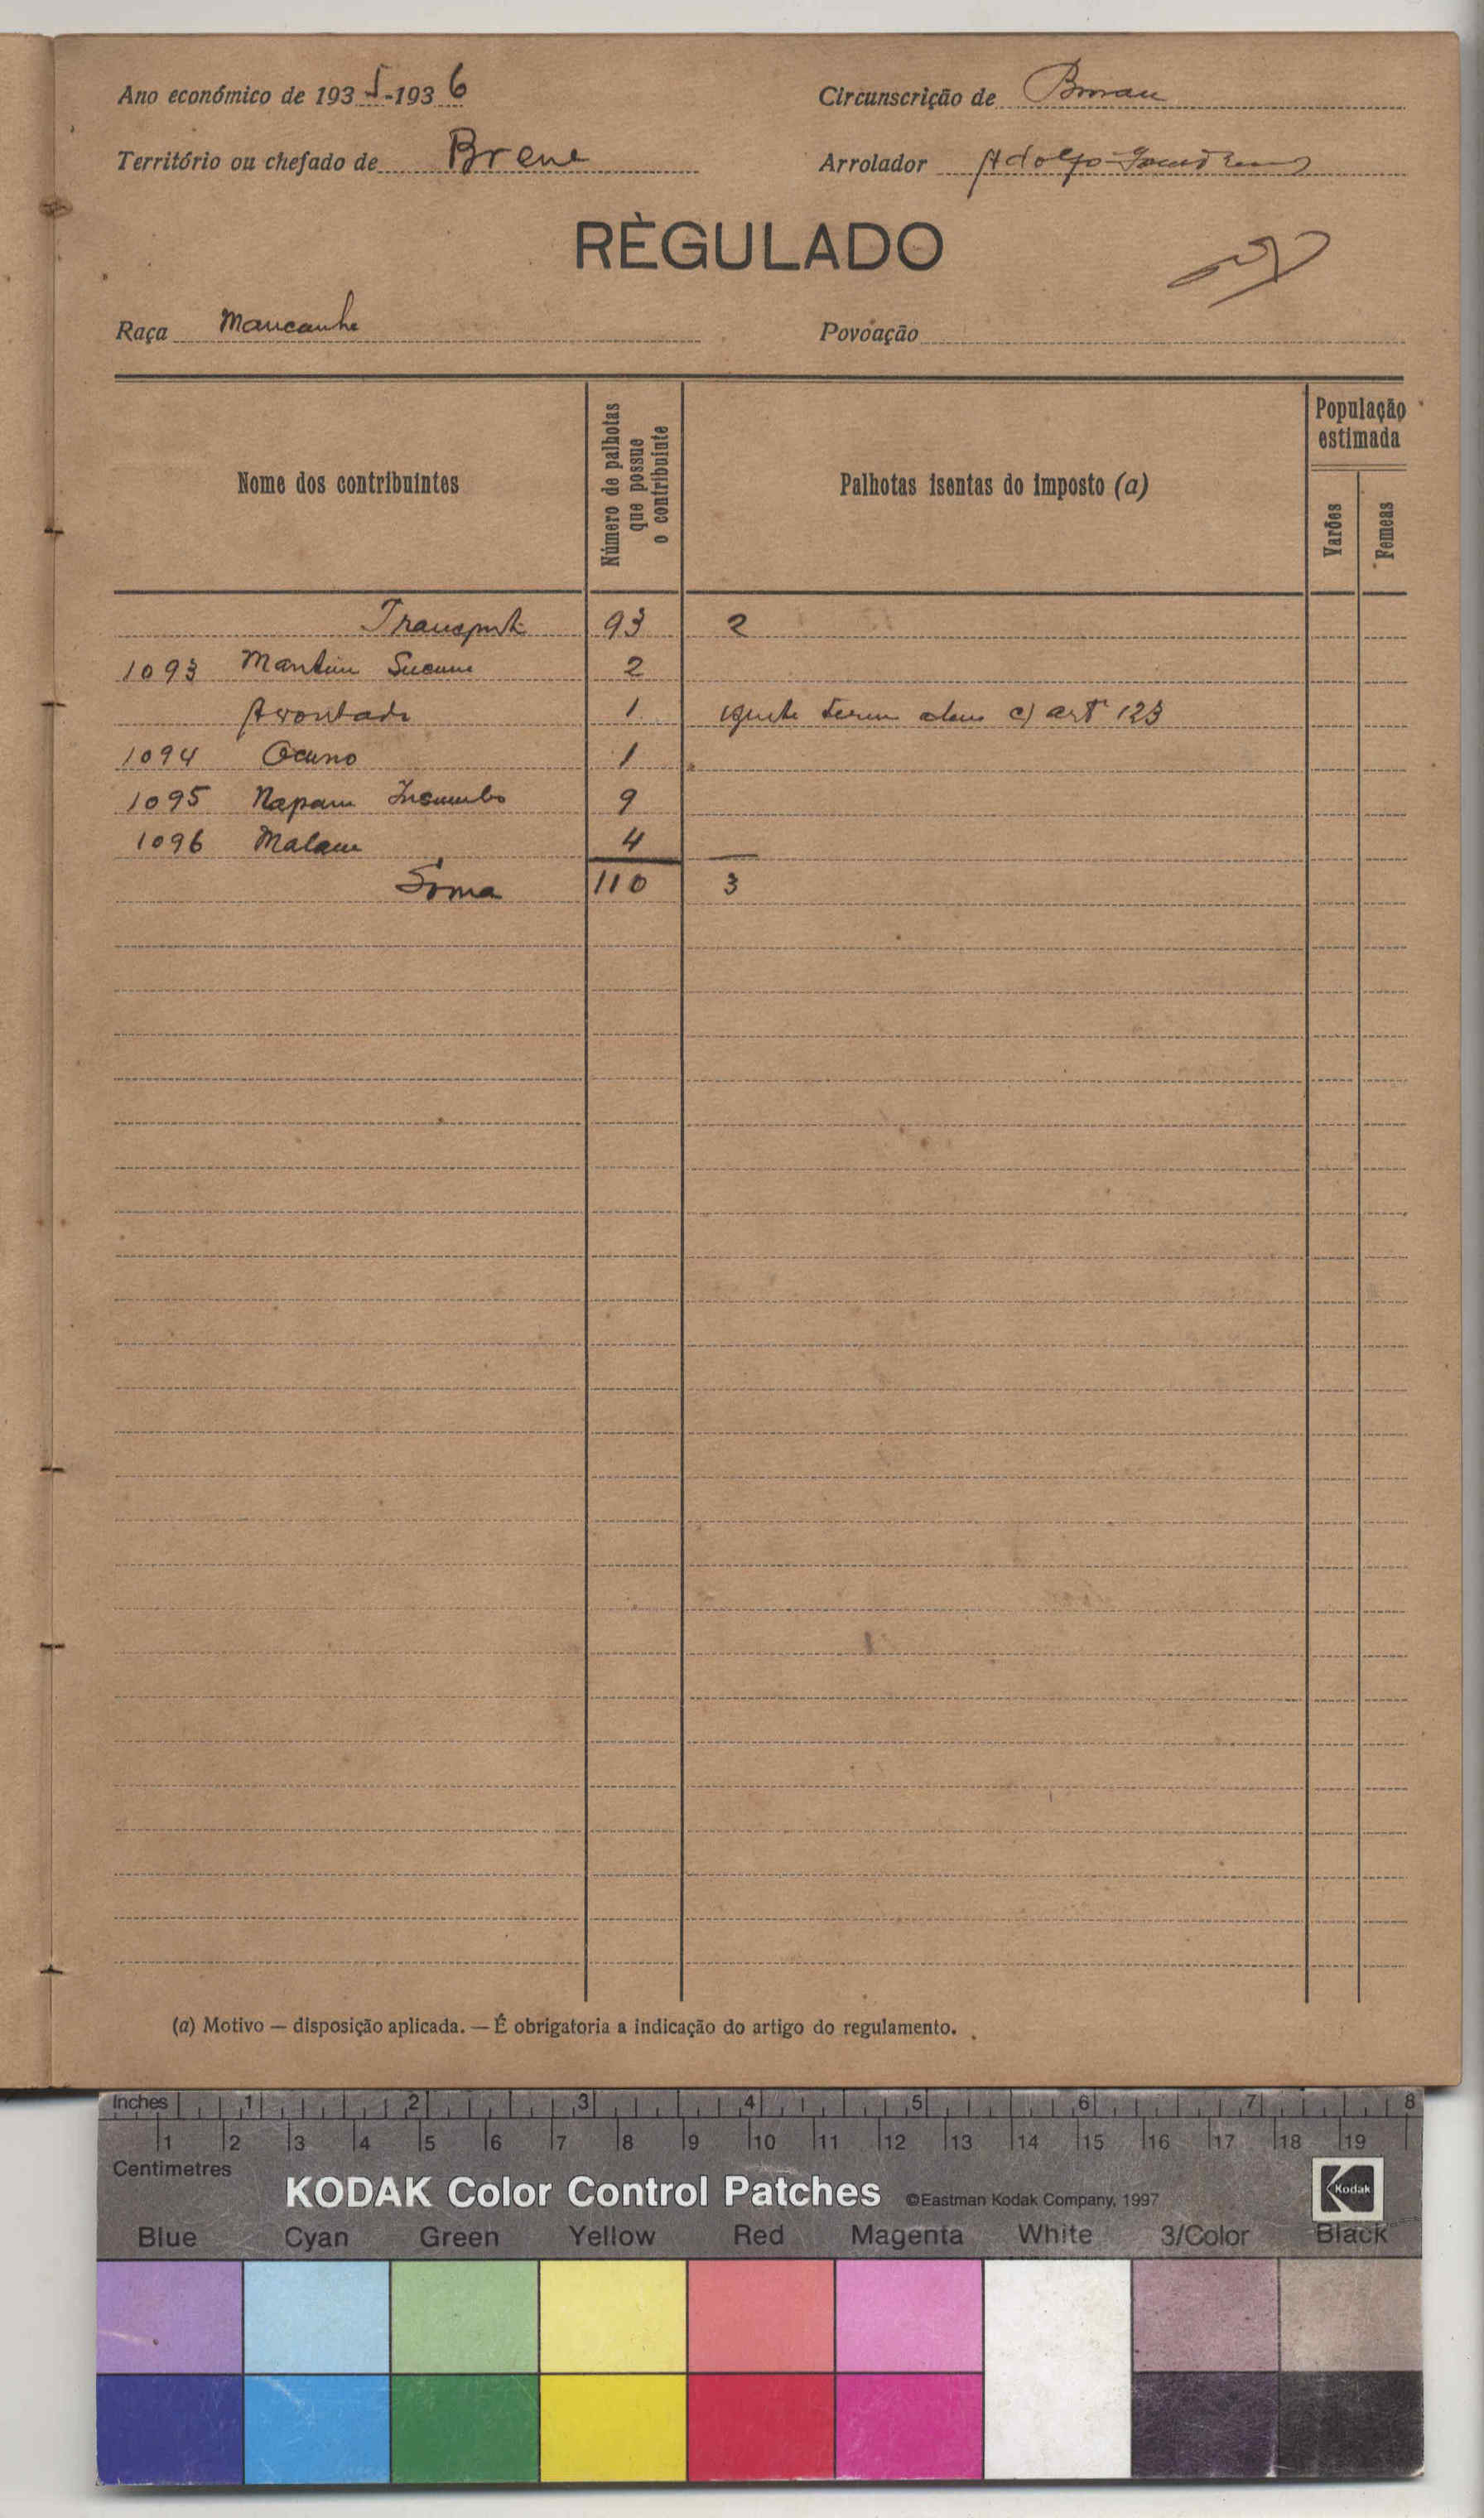 Ano económico de 1935-1936
Circunscrição de
Território ou chefado de Brene
Arrolador Adolfo
RÈGULADO
Raça Mancanhe
Povoação
Nome dos contribuintes
Número de palhotas que possue o contribuinte
Palhotas isentas do imposto (a)
População estimada
Varões
Femeas
Transporte 93 2
1093 2
1 c) artº 123
1094 Ocuno 1
1095 9
1096 Malam 4
Soma 110 3
(a) Motivo — disposição aplicada. — É obrigatoria a indicação do artigo do regulamento.
Inches 1 2 3 4 5 6 7 8
1 2 3 4 5 6 7 8 9 10 11 12 13 14 15 16 17 18 19
Centimetres
KODAK Color Control Patches ©Eastman Kodak Company, 1997 Kodak
Blue Cyan Green Yellow Red Magenta White 3/Color Black